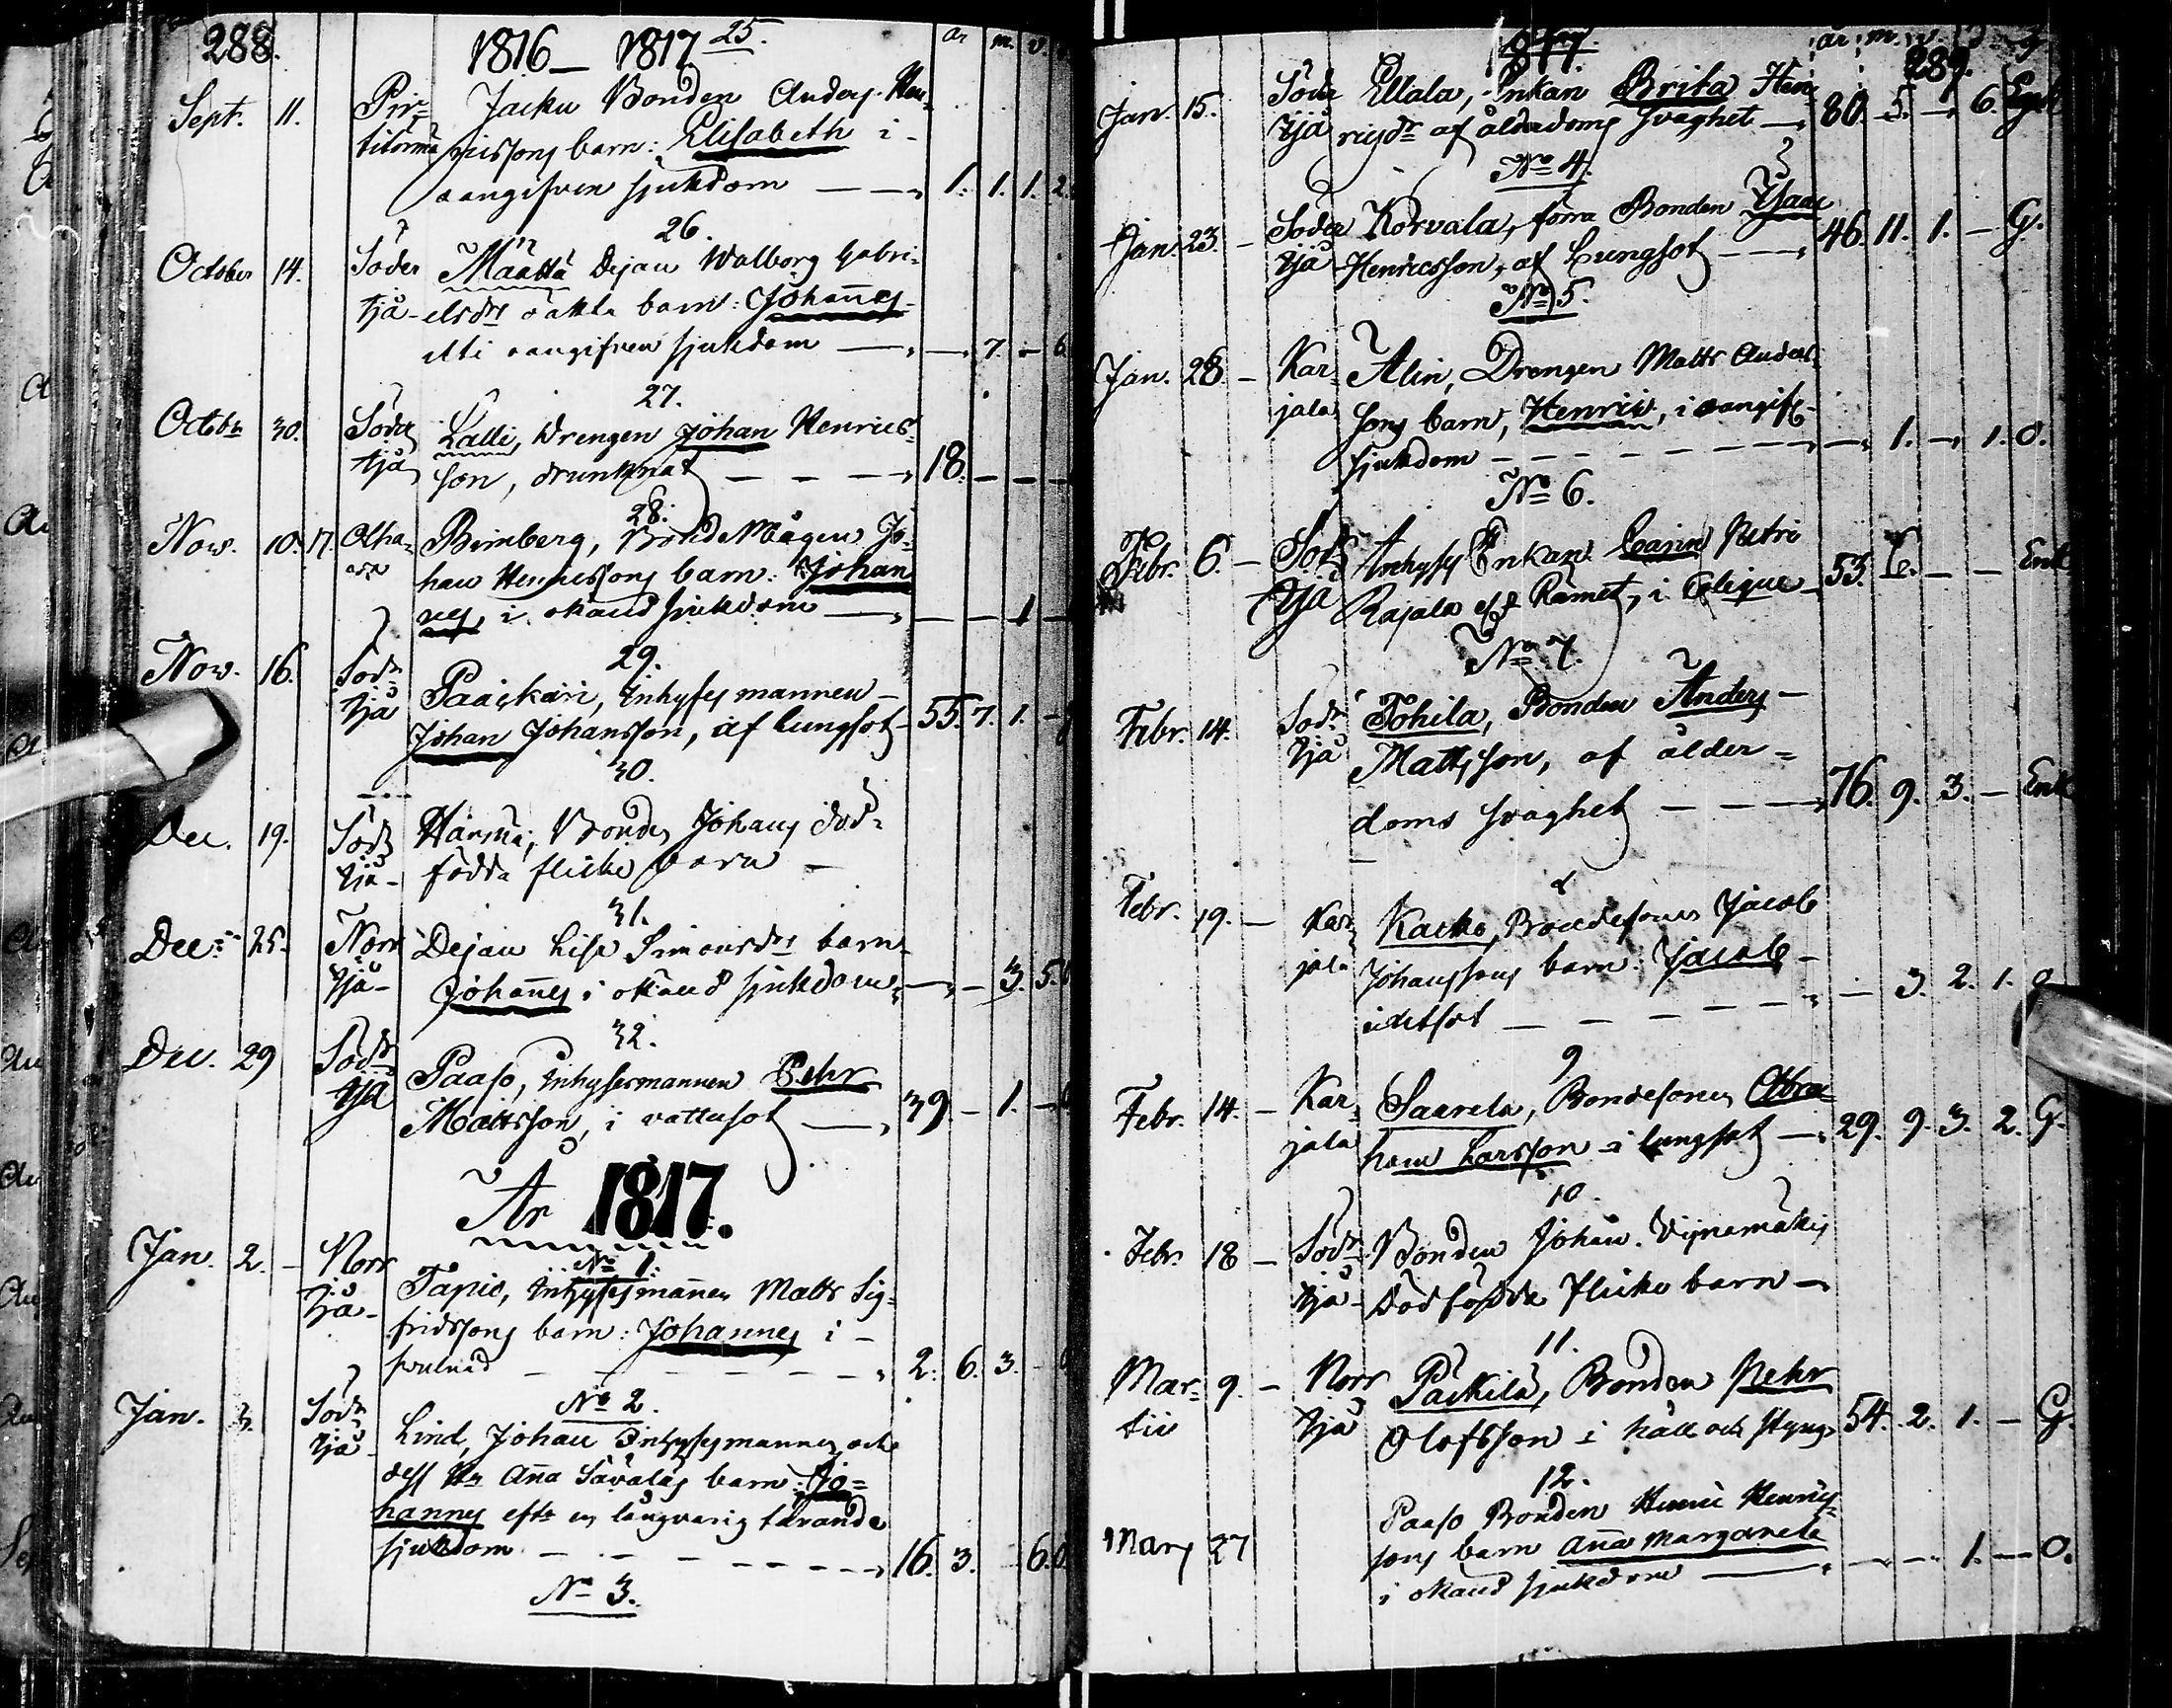 288.
1816 — 1817
25.
år m. v.
Sept. 11. Pir- Jacku Bonden Anders Hen-
titörmä ricssons barn: Elisabeth i
oangifven sjukdom — 1. 1. 1. 2.
26.
October 14. Söder Määttä Dejan Walborg Gabri-
tjä elsdrs oäkta barn: Johannes
utti oangifven sjukdom — — 7. — 6
27.
Octobr 30. Söder Lalli, Drengen Johan Henrics-
tjä son, drunknat — — — 18. — — —
28.
Nov. 10. 17. Alha- Bimberg, Bonde Mågen Jo-
han Henricssons barn: Johan
nes, i okänd sjukdom — — — 1 —
29.
Nov. 16. Södr Pääskäri, Inhyses mannen
tjä Johan Johansson, af lungsot 55. 7. 1. —
30.
Dec. 19. Södr Härmä, Bondes Johans död-
tjä födda flicke barn —
31.
Dec. 25. Norr Dejan Lisa Simonsdrs barn
tjä Johannes i okänd sjukdom — — 3. 5.
32.
Dec. 29 Södr Paaso, Inhysesmannen Pehr
tjä Mattsson, i vattusot — 39 — 1. —
År 1817.
No 1.
Jan. 2. — Norr Tapio, Inhysesmannen Matts Sig-
tjä fridssons barn: Johannes i
svulnad — — — 2. 6. 3. —
No 2.
Jan. 3. Södr Lind, Johan Inhysesmannen och
tjä dess Hu Anna Säväläs barn: Jo-
hannes efter en långvarig tärande
sjukdom — — — 16. 3. 6. 0.
No 3.
1817.
år m. v. d
289.
Jan. 15. Söder Ellala, Enkan Brita Hen-
tjä ricsdr af ålderdoms svaghet — 80. 5. — 6. Enk
No 4.
Jan. 23 — Söder Korvala, förra Bonden Isaac
tjä Henricsson, af Lungsot — 46. 11. 1. — G.
No 5.
Jan. 28 — Kar- Alin, Drengen Matts Anders-
jala sons barn, Henric, i oangifv.
sjukdom — — — 1. — 1. O.
No 6.
Febr. 6. — Södr Inhyses Enkan Carin Petri
tjä Rajala eft Rämet, i Colique 53. — — Enk.
No 7.
Febr. 14. Södr Tohila, Bonden Anders
tjä Mattsson, af ålder-
doms svaghet — — — 76. 9. 3. — Enk
Febr. 19. — Kar- Kacko, Bondesonen Jacob
jala Johanssons barn: Jacob
— — — 3. 2. 1. O
9
Febr. 14. — Kar- Saarela, Bondesonen Abra-
jala ham Larsson i lungsot — 29. 9. 3. 2. G.
10.
Febr. 18 — Södr Bonden Johan Vijnamäkis
tjä dödfödde flicke barn —
11.
Mar- 9. — Norr Päckilä, Bonden Pehr
tii tjä Olofsson i håll och styng 54. 2. 1. — G.
12.
Mars 27 Paaso Bonden Henric Henrics-
sons barn Anna Margareta
i okänd sjukdom — — — 1. — O.